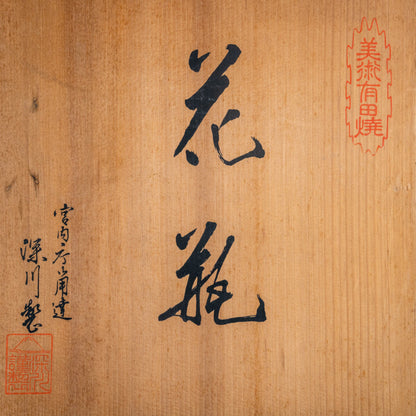 美術有田燒
花瓶
宮内庁御用達
深川製